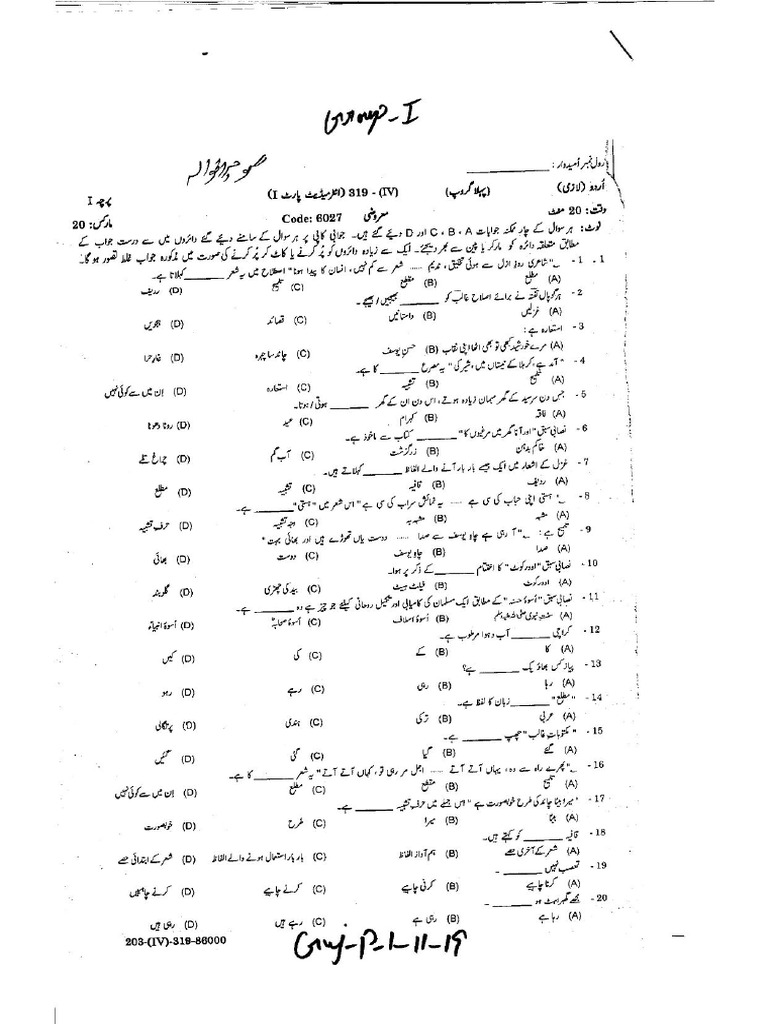 Group - I
گوجرانوالہ
رول نمبر اُمیدوار: ________
اُردو (لازمی) (پہلا گروپ) 319 - (IV) (انٹرمیڈیٹ پارٹ I) پرچہ I
وقت: 20 منٹ معروضی Code: 6027 مارکس: 20
نوٹ: ہر سوال کے چار ممکنہ جوابات A ، B ، C اور D دیئے گئے ہیں۔ جوابی کاپی پر ہر سوال کے سامنے دیئے گئے دائروں میں سے درست جواب کے
مطابق متعلقہ دائرہ کو مارکر یا پین سے بھر دیجئے۔ ایک سے زیادہ دائروں کو پُر کرنے یا کاٹ کر پُر کرنے کی صورت میں مذکورہ جواب غلط تصور ہو گا۔
1 - 1 - "شاعری روزِ ازل سے ہوئی تخلیق، ندیم ...... شعر سے کم نہیں، انسان کا پیدا ہونا" اصطلاح میں یہ شعر ______ کہلاتا ہے۔
(A) مطلع (B) مقطع (C) تلمیح (D) ردیف
2 - ہرگوپال تفتہ نے برائے اصلاح غالب کو ______ بھیجیں/بھیجے۔
(A) غزلیں (B) داستانیں (C) قصائد (D) ہجویں
3 - استعارہ ہے:
(A) مرے خورشید کبھی تو بھی اٹھا اپنی نقاب (B) حسنِ یوسف (C) چاند سا چہرہ (D) غارِ حرا
4 - "آمد ہے، کربلا کے نیستاں میں، شیر کی" یہ مصرع ______ کا ہے۔
(A) تلمیح (B) تشبیہ (C) استعارہ (D) اِن میں سے کوئی نہیں
5 - جس دن سرسید کے گھر مہمان زیادہ ہوتے، اس دن ان کے گھر ______ ہوتی/ہوتا۔
(A) فاقہ (B) کہرام (C) عید (D) رونا دھونا
6 - نصابی سبق "اور آنا گھر میں مرغیوں کا" ______ کتاب سے ماخوذ ہے۔
(A) خاکم بدہن (B) زرگزشت (C) آب گم (D) چراغ تلے
7 - غزل کے اشعار میں ایک جیسے بار بار آنے والے الفاظ ______ کہلاتے ہیں۔
(A) ردیف (B) قافیہ (C) تشبیہ (D) مطلع
8 - "ہستی اپنی حباب کی سی ہے ...... یہ نمائش سراب کی سی ہے" اس شعر میں "ہستی" ______ ہے۔
(A) مشبہ (B) مشبہ بہ (C) وجہ تشبیہ (D) حرف تشبیہ
9 - تلمیح ہے: "آ رہی ہے چاہِ یوسف سے صدا ...... دوست یاں تھوڑے ہیں اور بھائی بہت"
(A) صدا (B) چاہِ یوسف (C) دوست (D) بھائی
10 - نصابی سبق "اوورکوٹ" کا اختتام ______ کے ذکر پر ہوا۔
(A) اوورکوٹ (B) فیلٹ ہیٹ (C) بید کی چھڑی (D) گلوبند
11 - نصابی سبق "اُسوۂ حسنہ" کے مطابق ایک مسلمان کی کامیابی اور تکمیل روحانی کیلئے جو چیز ہے وہ ______ ہے۔
(A) سنتِ نبوی صلی اللہ علیہ وسلم (B) اُسوۂ اسلاف (C) اُسوۂ صحابہؓ (D) اُسوۂ انبیاءؑ
12 - کراچی ______ آب و ہوا مرطوب ہے۔
(A) کا (B) کے (C) کی (D) کیں
13 - پیاز کس بھاؤ بک ______ ہے؟
(A) رہا (B) رہی (C) رہے (D) رہو
14 - "مطلع" ______ زبان کا لفظ ہے۔
(A) عربی (B) ترکی (C) ہندی (D) پرتگالی
15 - "مکتوباتِ غالب" چھپ ______ ہے۔
(A) گئے (B) گیا (C) گئی (D) گئیں
16 - "پھرے راہ سے وہ، یہاں آتے آتے ...... اجل مر رہی تو، کہاں آتے آتے" یہ شعر ______ کا ہے۔
(A) تلمیح (B) مقطع (C) مطلع (D) اِن میں سے کوئی نہیں
17 - "میرا بیٹا چاند کی طرح خوبصورت ہے" اس جملے میں حرف تشبیہ ______ ہے۔
(A) بیٹا (B) میرا (C) طرح (D) خوبصورت
18 - قافیہ ______ کو کہتے ہیں۔
(A) شعر کے آخری حصے (B) ہم آواز الفاظ (C) بار بار استعمال ہونے والے الفاظ (D) شعر کے ابتدائی حصے
19 - تعصب نہیں ______ -
(A) کرنا چاہیے (B) کرنی چاہیے (C) کرنے چاہیے (D) کرنے چاہئیں
20 - مجھے گھبراہٹ ہو ______ -
(A) رہا ہے (B) رہی ہے (C) رہے ہیں (D) رہی ہیں
203-(IV)-319-86000
Guj-P-1-11-19